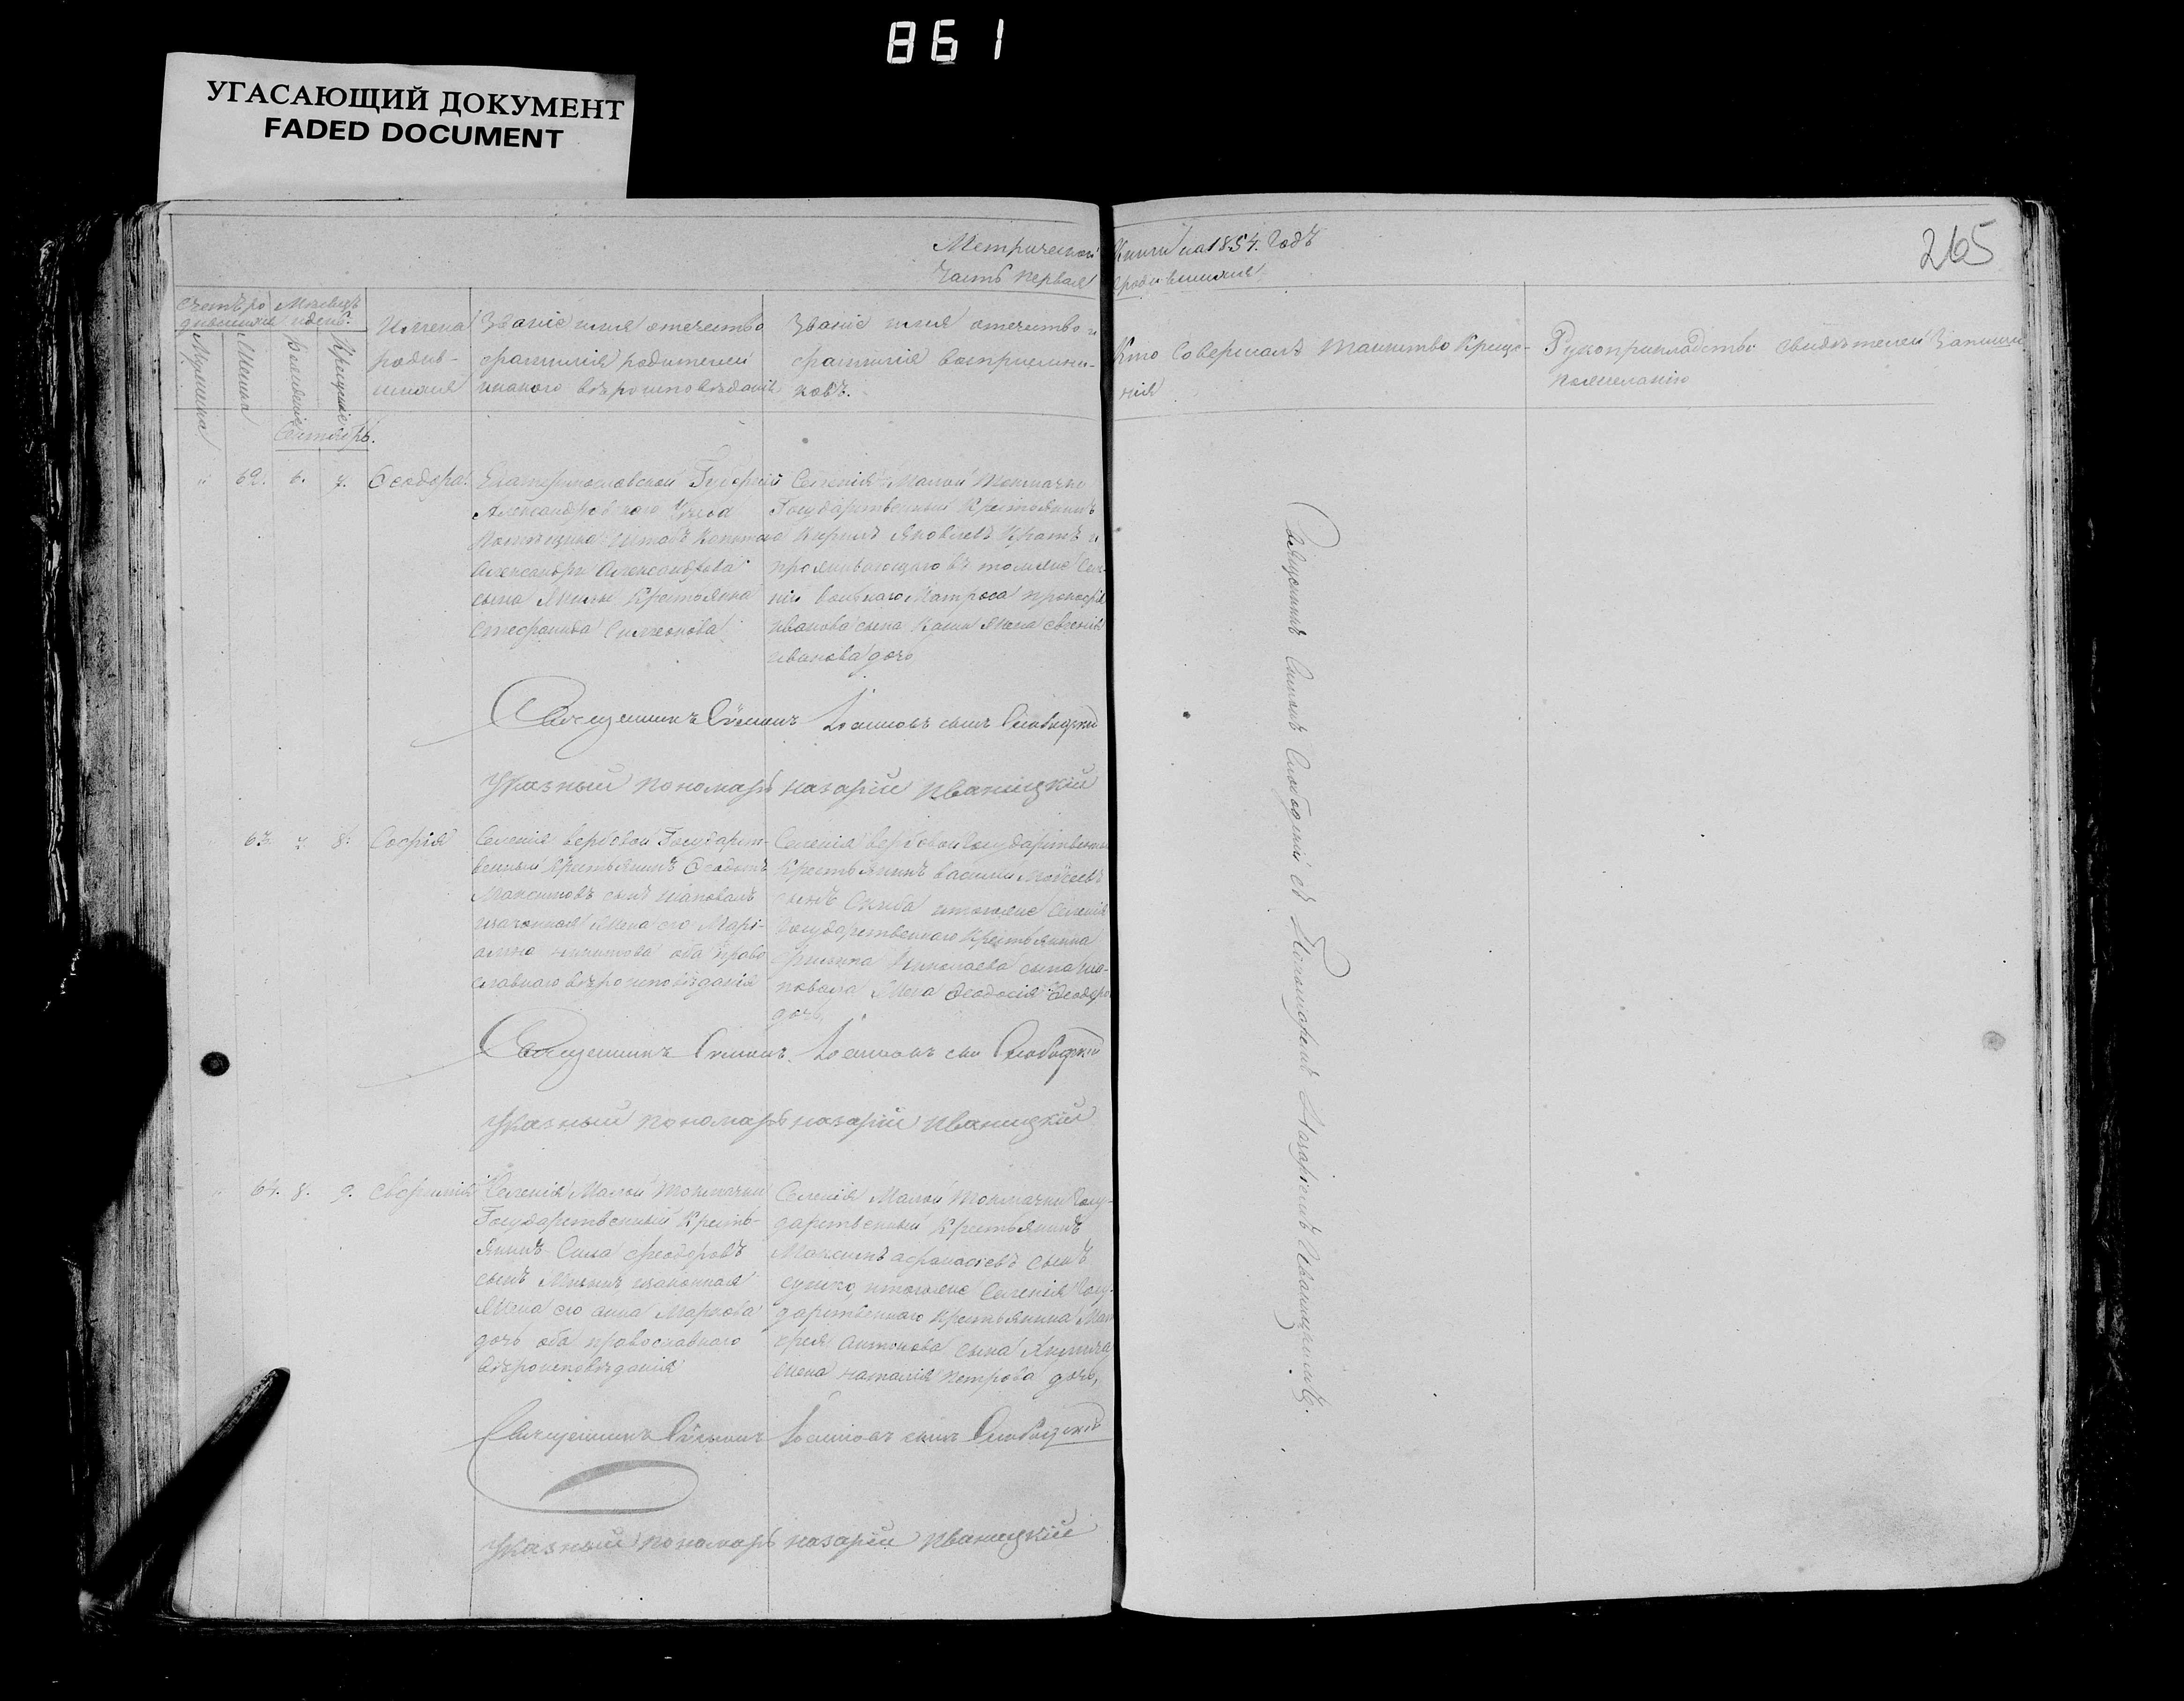 861
УГАСАЮЩИЙ ДОКУМЕНТ
FADED DOCUMENT
265
Метрической Книги на 1854. Годъ
Часть первая о родившихся
Счетъ родившихся
Мѣсяцъ и день.
Мужеска
Женска
Рожденіе
Крещеніе
Имена родив-
шихся
Званіе имя отечество
фамилія родителей
и какого вѣроисповѣданія
Званіе имя отечество и
фамилія воспріемни-
ковъ.
Кто Совершалъ таинство Креще-
нія
Рукоприкладство свидѣтелей Записи
по желанію
Сентябрь.
62. 6. 7. Феодора
Екатеринославской Губерніи
Александровского Уѣзда
Помѣщика Штабъ Капитана
Александра Александрова
сына Крестьянка
Стефанида Симеонова
Селенія Малой Токмачки
Государственный Крестьянинъ
Кирилъ Яковлевъ и
проживающаго въ томже Селе-
ніи Матроса Прокофія
Иванова сына жена Евгенія
Иванова дочь
Священникъ Симонъ Іоанновъ сынъ Слободскій
Указный пономарь Назарій Иваницкій
63. 7. 8. Софія
Селенія Вербовой Государст-
венный Крестьянинъ Феодотъ
Максимовъ сынъ Шаповалъ
и законная Жена его Марі-
анна Никитова оба право-
славнаго вѣроисповѣданія
Селенія Вербовой Государственный
Крестьянинъ Василій Моѵсеевъ
сынъ Скиба и томже Селенія
Государственнаго Крестьянина
Филипа Николаева сына Ша-
повала Жена Феодосія Феодоро
дочь,
Священникъ Симонъ Іоанновъ сын Слободскій
Указный пономарь Назарій Иваницкій
64. 8. 9. Евфимія
Селенія Малой Токмачки
Государственный Кресть-
янинъ Сила Феодоровъ
сынъ и законная
Жена его Анна Маркова
дочь оба православнаго
вѣроисповѣданія
Селенія Малой Токмачки Госу-
дарственный Крестьянинъ
Максимъ Афанасіевъ сынъ
Сушко, и томже Селенія Госу-
дарственнаго Крестьянина
Антонова сына
Жена Наталія Петрова дочь,
Священникъ Симонъ Іоанновъ сынъ Слободскій
Указный пономарь Назарій Иваницкій
Священникъ Симонъ Слободскій съ Пономаремъ Назаріемъ Иваницкимъ.